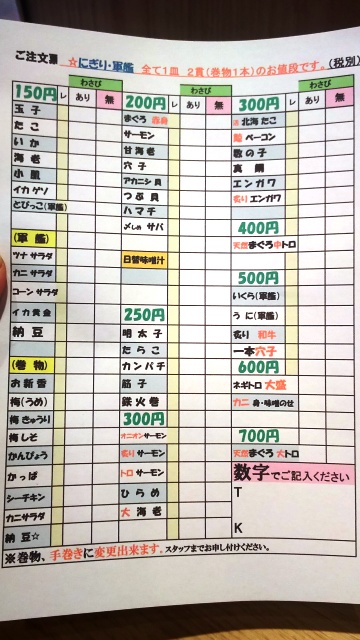 ご注文票 ☆にぎり・軍艦 全て1皿 2貫(巻物1本)のお値段です。(税別)
150円 レ わさび あり 無
玉子
たこ
いか
海老
小肌
イカゲソ
とびっこ(軍艦)
(軍艦)
ツナサラダ
カニサラダ
コーンサラダ
イカ黄金
納豆
(巻物)
お新香
梅(うめ)
梅きゅうり
梅しそ
かんぴょう
かっぱ
シーチキン
カニサラダ
納豆☆
200円 レ わさび あり 無
まぐろ 赤身
サーモン
甘海老
穴子
アカニシ貝
つぶ貝
ハマチ
〆しめサバ
日替味噌汁
250円
明太子
たらこ
カンパチ
筋子
鉄火巻
300円
オニオンサーモン
炙りサーモン
トロサーモン
ひらめ
大海老
300円 レ わさび あり 無
北海たこ
ベーコン
数の子
真鯛
エンガワ
炙りエンガワ
400円
天然まぐろ中トロ
500円
いくら(軍艦)
うに(軍艦)
炙り 和牛
一本穴子
600円
ネギトロ 大盛
カニ 身・味噌のせ
700円
天然まぐろ大トロ
数字でご記入ください
T
K
※巻物、手巻きに変更出来ます。スタッフまでお申し付けください。